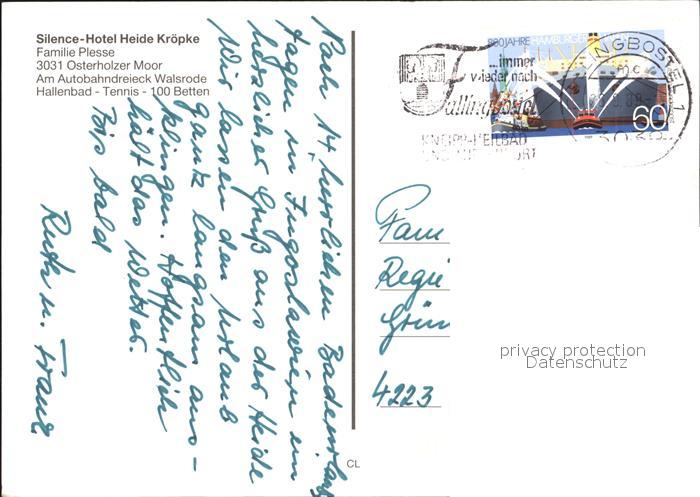 Silence-Hotel Heide Kröpke
Familie Plesse
3031 Osterholzer Moor
Am Autobahndreieck Walsrode
Hallenbad - Tennis - 100 Betten
Nach 14 herrlichen Badeurlaubs
tagen in Jugoslawien ein
herzlicher Gruß aus der Heide
Wir lassen den Urlaub
ganz langsam aus-
klingen. Hoffentlich
hält das Wetter.
Bis bald
Ruth u. Frank
CL
800 JAHRE HAMBURGER
60
...immer
wieder nach
Fallingbostel
KNEIPP-HEILBAD
LINGBOSTEL 1
Fam
Regi
Grün
4223
privacy protection
Datenschutz